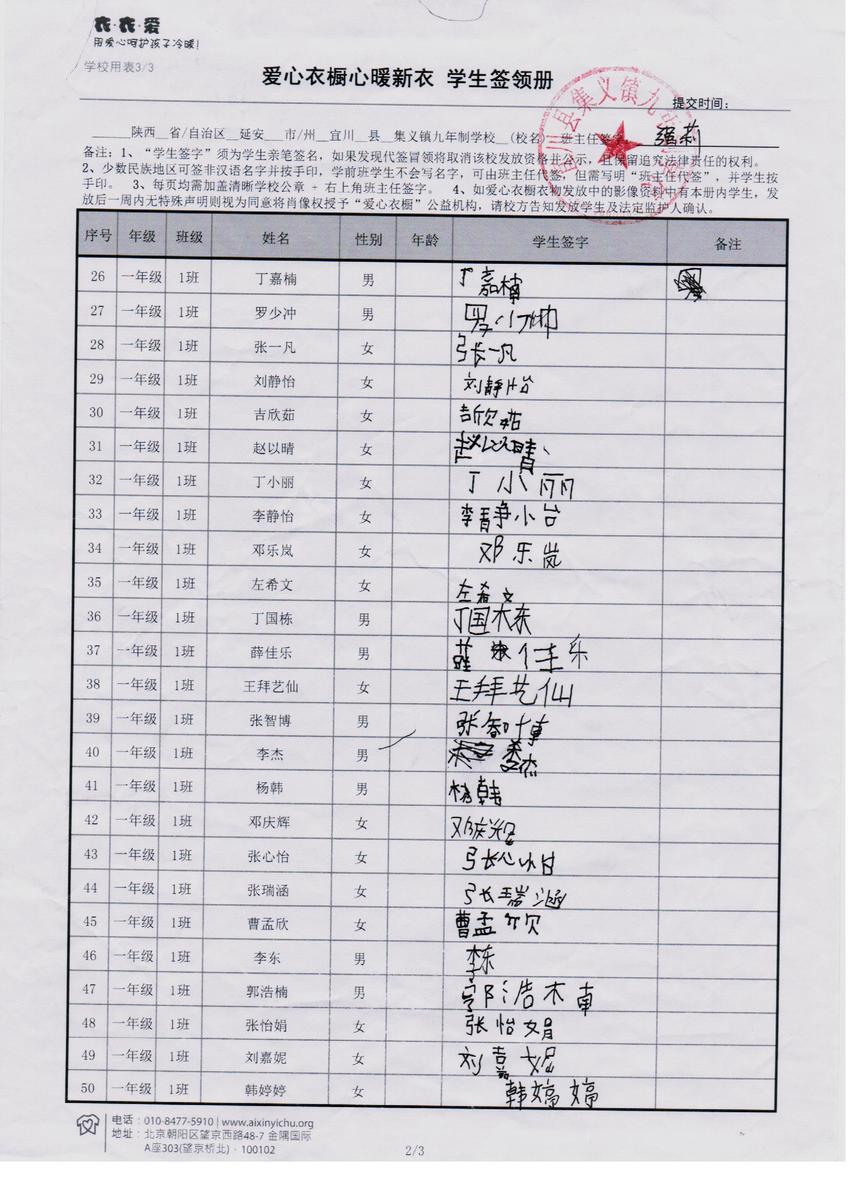 衣·衣·爱
用爱心呵护孩子冷暖!
学校用表3/3
爱心衣橱心暖新衣 学生签领册
提交时间:
陕西__省/自治区__延安__市/州__宜川__县__集义镇九年制学校__(校名) 班主任签字
备注:1、“学生签字”须为学生亲笔签名,如果发现代签冒领将取消该校发放资格并公示,且保留追究法律责任的权利。
2、少数民族地区可签非汉语名字并按手印,学前班学生不会写名字,可由班主任代签,但需写明“班主任代签”,并学生按
手印。 3、每页均需加盖清晰学校公章 + 右上角班主任签字。 4、如爱心衣橱衣物发放中的影像资料中有本册内学生,发
放后一周内无特殊声明则视为同意将肖像权授予“爱心衣橱”公益机构,请校方告知发放学生及法定监护人确认。
序号 年级 班级 姓名 性别 年龄 学生签字 备注
26 一年级 1班 丁嘉楠 男 丁嘉楠
27 一年级 1班 罗少冲 男
28 一年级 1班 张一凡 女 张一凡
29 一年级 1班 刘静怡 女 刘静怡
30 一年级 1班 吉欣茹 女 吉欣茹
31 一年级 1班 赵以晴 女 赵以晴
32 一年级 1班 丁小丽 女 丁小丽
33 一年级 1班 李静怡 女 李静怡
34 一年级 1班 邓乐岚 女 邓乐岚
35 一年级 1班 左希文 女 左希文
36 一年级 1班 丁国栋 男 丁国栋
37 一年级 1班 薛佳乐 男 薛佳乐
38 一年级 1班 王拜艺仙 女 王拜艺仙
39 一年级 1班 张智博 男 张智博
40 一年级 1班 李杰 男 李杰
41 一年级 1班 杨韩 男 杨韩
42 一年级 1班 邓庆辉 女
43 一年级 1班 张心怡 女 张心怡
44 一年级 1班 张瑞涵 女 张瑞涵
45 一年级 1班 曹孟欣 女 曹孟欣
46 一年级 1班 李东 男 李东
47 一年级 1班 郭浩楠 男 郭浩楠
48 一年级 1班 张怡娟 女 张怡娟
49 一年级 1班 刘嘉妮 女 刘嘉妮
50 一年级 1班 韩婷婷 女 韩婷婷
电话:010-8477-5910 | www.aixinyichu.org
地址:北京朝阳区望京西路48-7 金隅国际
A座303(望京桥北)·100102
2/3